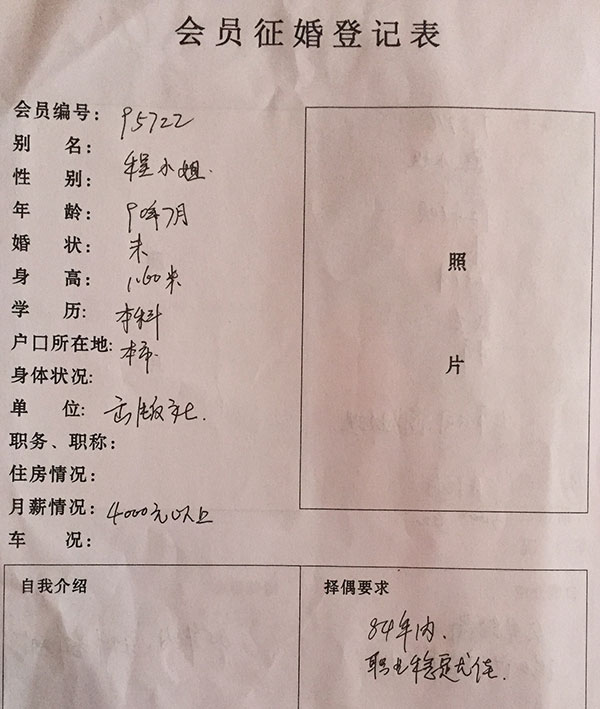 会员征婚登记表
会员编号： 95722
别 名：
性 别： 程小姐.
年 龄： 90年7月
婚 状： 未
身 高： 1.60米
学 历： 本科
户口所在地: 本市.
身体状况:
单 位: 出版社.
职务、职称：
住房情况：
月薪情况： 4000元以上
车 况：
照
片
自我介绍
择偶要求
84年内、
职业稳定尤佳.